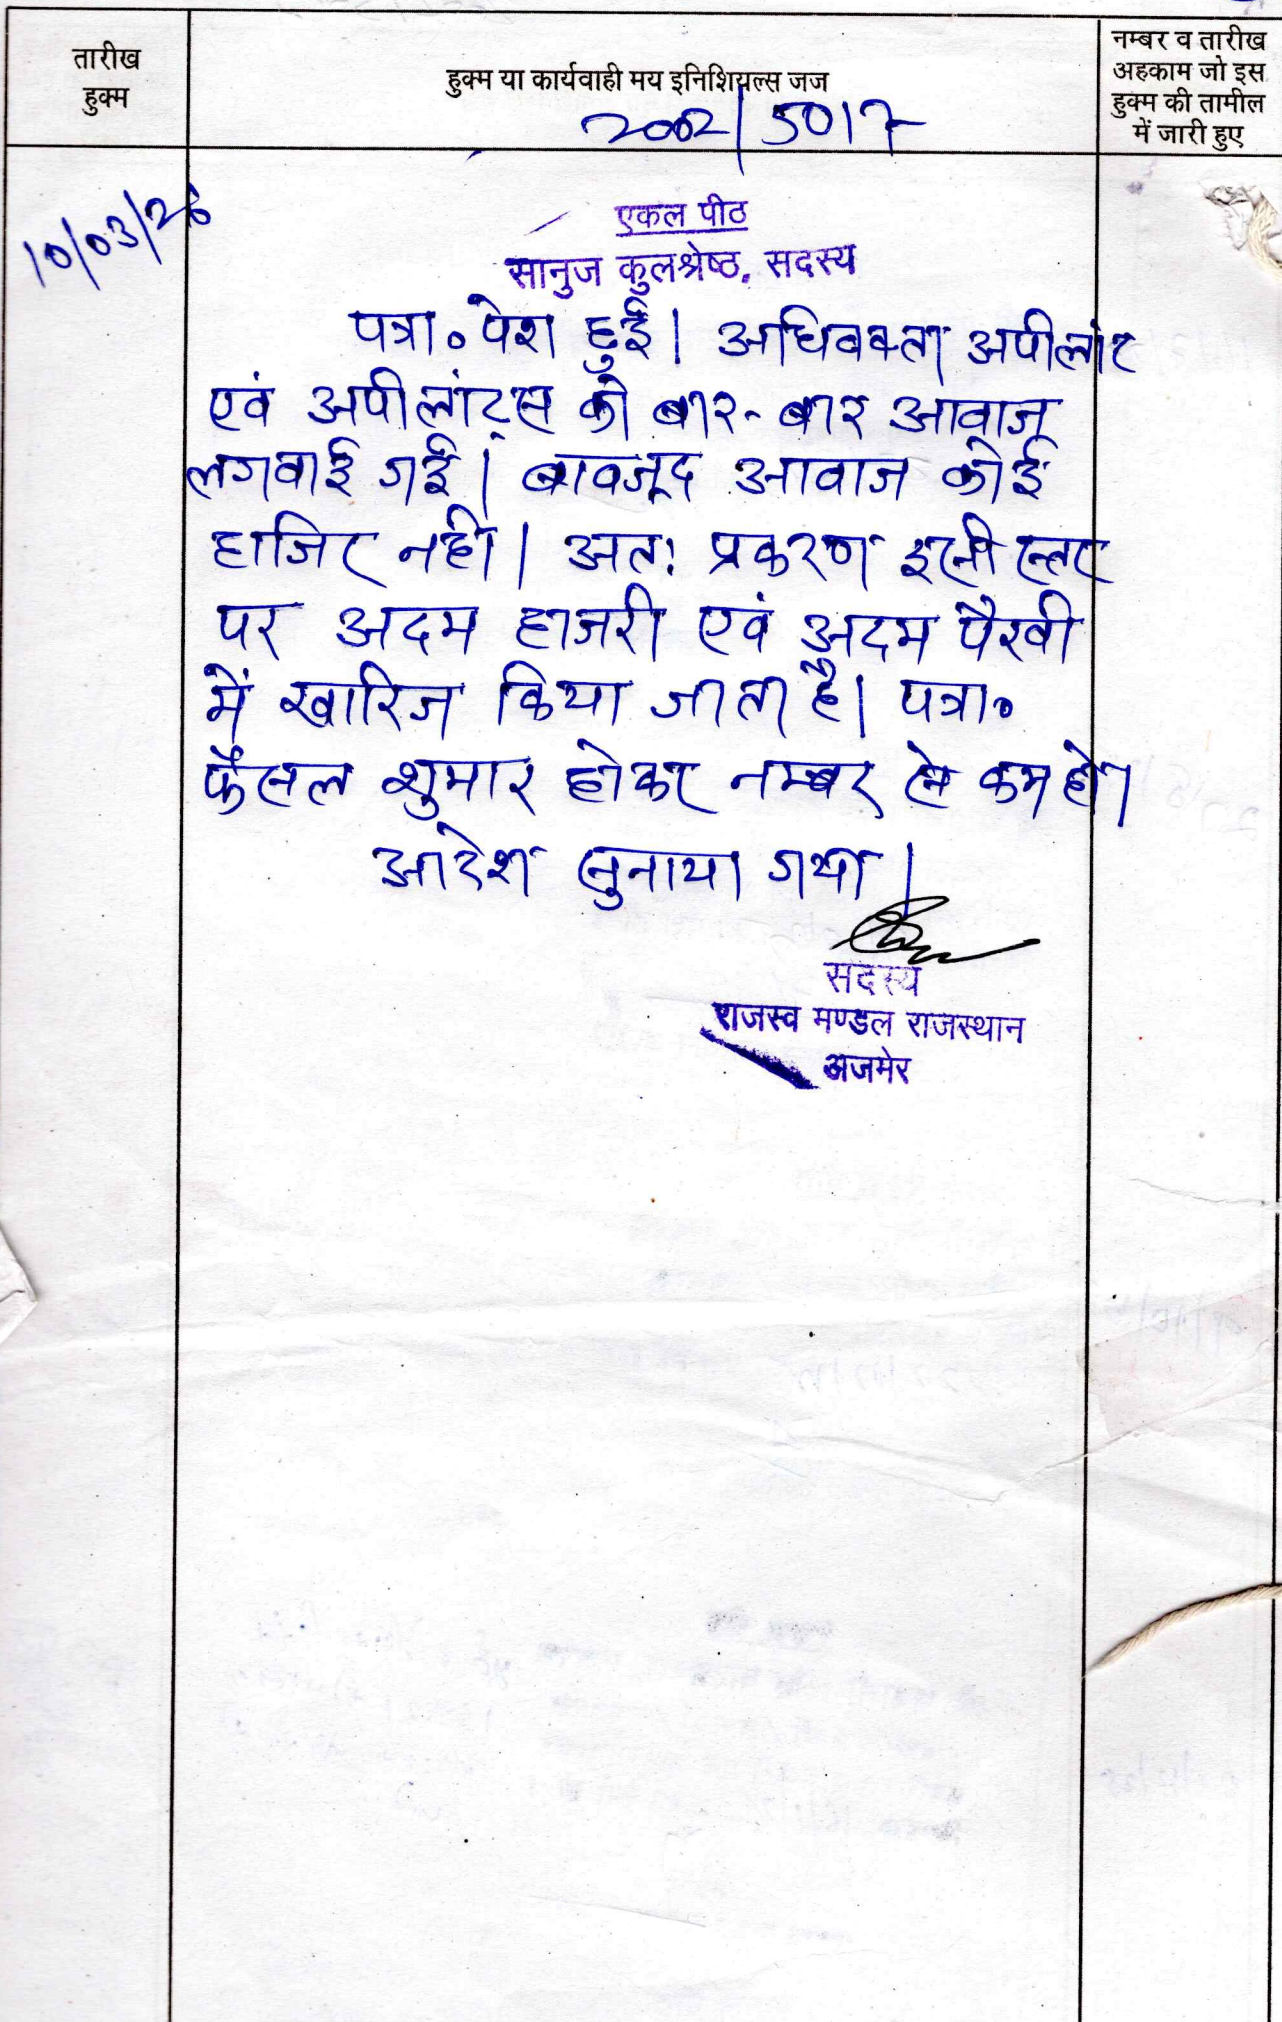 तारीख
हुक्म
हुक्म या कार्यवाही मय इनिशियल्स जज
2002/5017
नम्बर व तारीख
अहकाम जो इस
हुक्म की तामील
में जारी हुए
10/03/26
एकल पीठ
सानुज कुलश्रेष्ठ, सदस्य
पत्रा० पेश हुई। अधिवक्ता अपीलांट
एवं अपीलांट्स को बार-बार आवाज
लगवाई गई। बावजूद आवाज कोई
हाजिर नहीं। अतः प्रकरण इसी स्तर
पर अदम हाजरी एवं अदम पैरवी
में खारिज किया जाता है। पत्रा०
फैसल शुमार होकर नम्बर से कम हो।
आदेश सुनाया गया।
सदस्य
राजस्व मण्डल राजस्थान
अजमेर